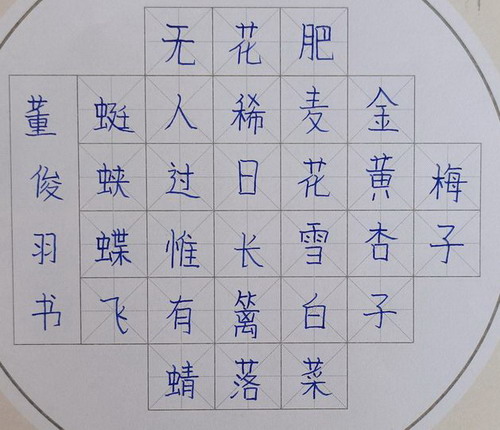 梅子
金黄杏子
肥麦花雪白菜
花稀日长篱落
无人过惟有蜻
蜓蛱蝶飞
董俊羽书